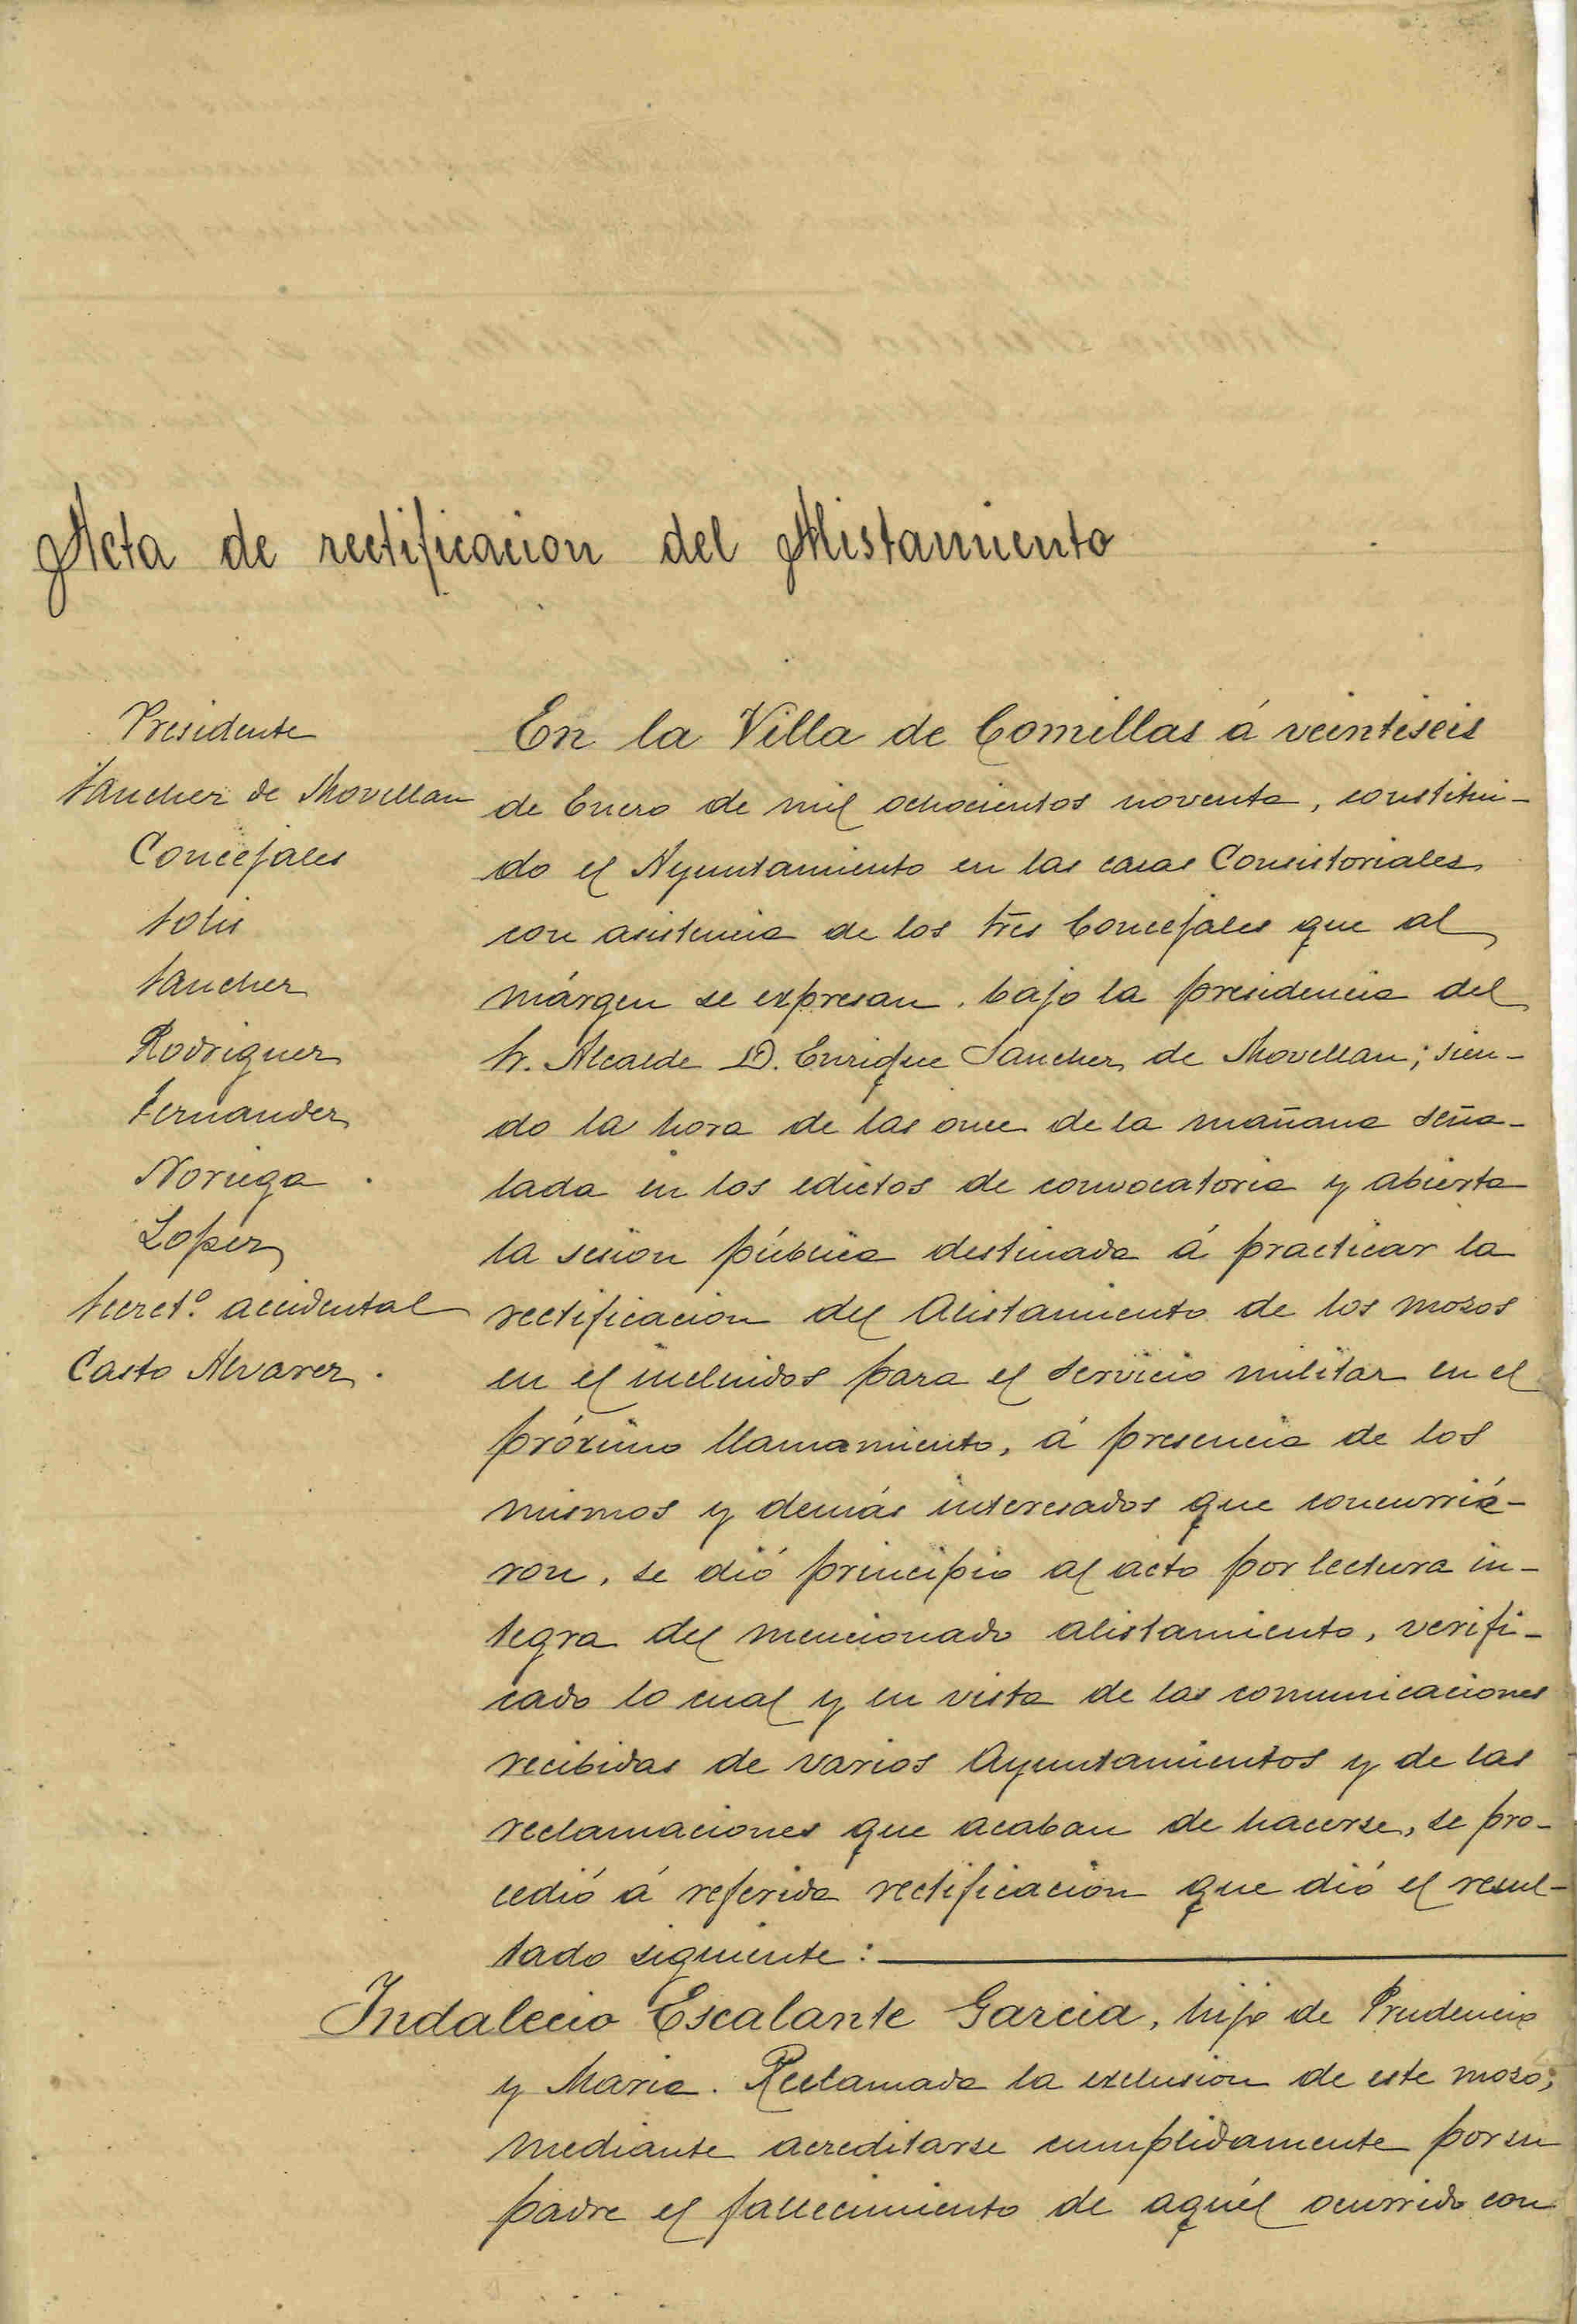 Acta de rectificacion del Alistamiento
Presidente
Sanchez de Movellan
Concejales
Solis
Sanchez
Rodriguez
Fernandez
Noriega
Lopez
Secret.º accidental
Casto Alvarez.
En la Villa de Comillas á veintiseis
de Enero de mil ochocientos noventa, constitui-
do el Ayuntamiento en las casas Consistoriales
con asistencia de los tres Concejales que al
márgen se expresan, bajo la presidencia del
Sr. Alcalde D. Enrique Sanchez de Movellan; sien-
do la hora de las once de la mañana seña-
lada en los edictos de convocatoria y abierta
la sesion pública destinada á practicar la
rectificacion del Alistamiento de los mozos
en el incluidos para el servicio militar en el
próximo llamamiento, á presencia de los
mismos y demás interesados que concurrie-
ron, se dió principio al acto por lectura in-
tegra del mencionado alistamiento, verifi-
cado lo cual y en vista de las comunicaciones
recibidas de varios Ayuntamientos y de las
reclamaciones que acaban de hacerse, se pro-
cedió á referida rectificacion que dió el resul-
tado siguiente:
Indalecio Escalante Garcia, hijo de Prudencio
y Maria. Reclamada la exclusion de este mozo;
mediante acreditarse cumplidamente por su
padre el fallecimiento de aquél ocurrido con